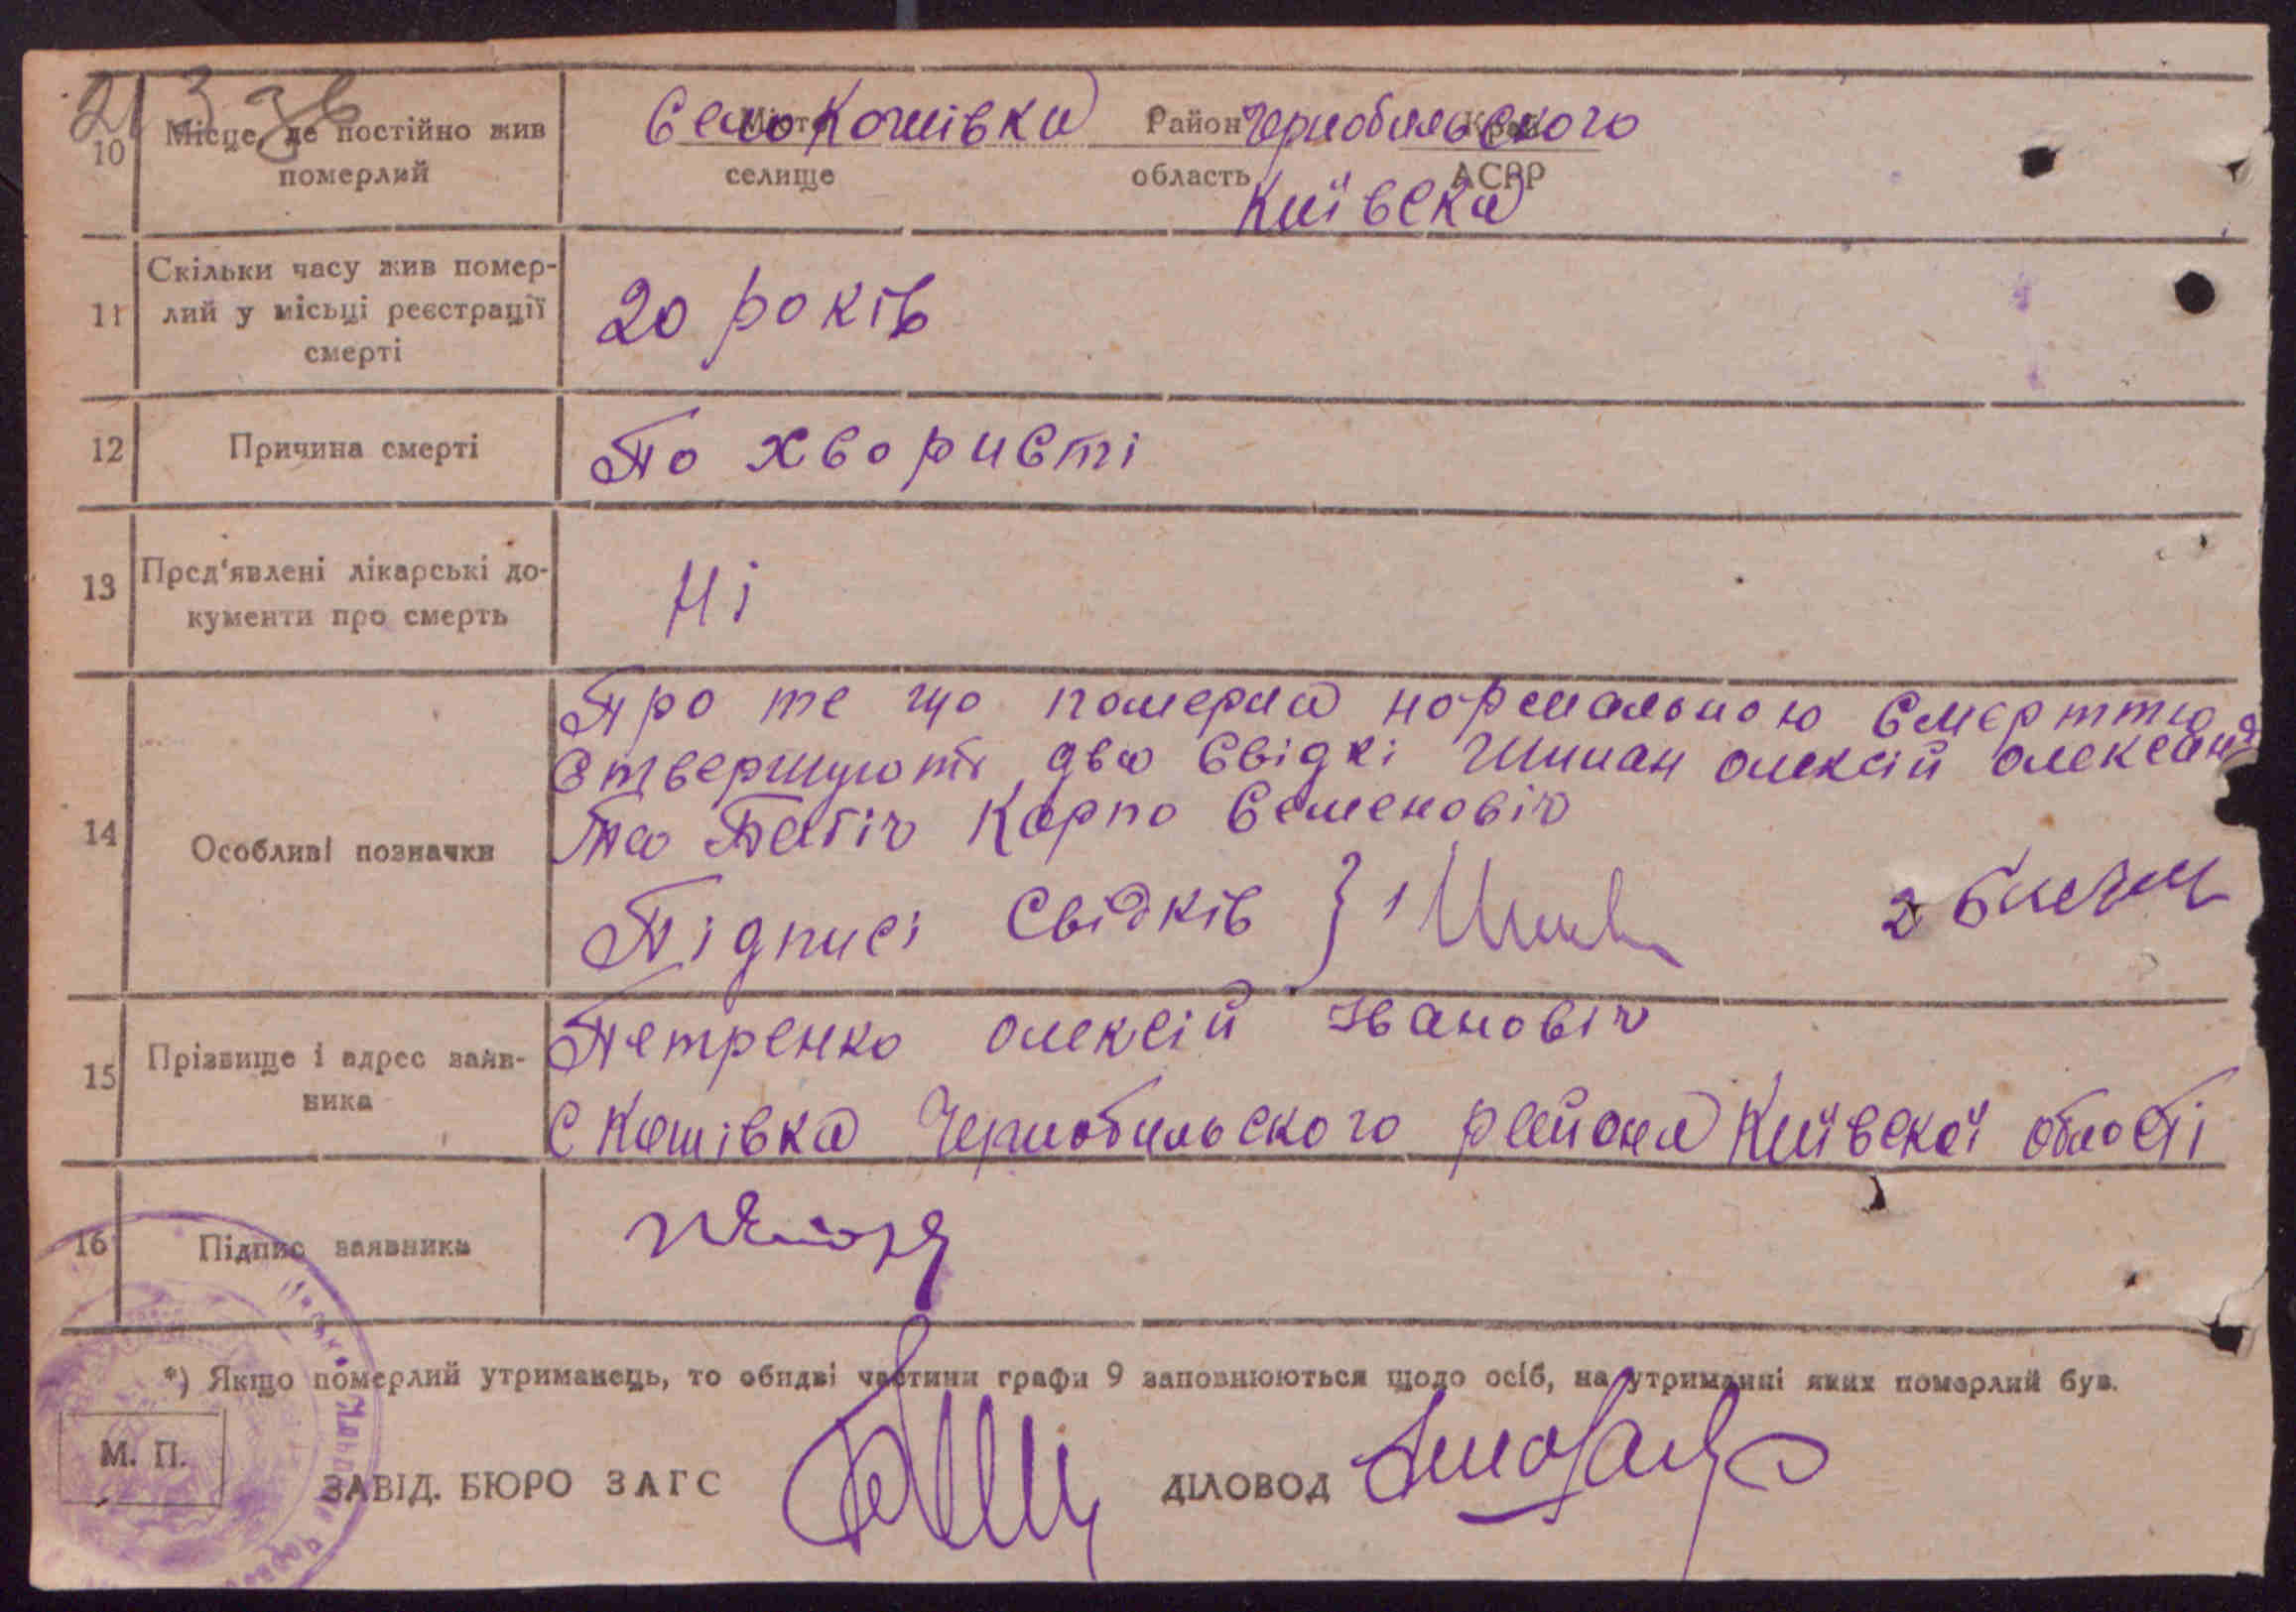 10 Місце, де постійно жив померлий
Село Кошівки Район Чернобильского
селище область АСРР
Київска
11 Скільки часу жив помер-
лий у місьці реєстрації
смерті
20 років
12 Причина смерті
По хвористі
13 Пред'явлені лікарські до-
кументи про смерть
Ні
14 Особливі позначки
Про те що померла нормальною смерттю
ствершують два свідкі Шиман Олексій Олександ
та Бабіч Карпо Семеновіч
Підписі свідків } 1 2
15 Прізвище і адрес заяв-
ника
Петренко Олексій Івановіч
с Кошівка Чернобильского района Київскої області
16 Підпис заявника
*) Якщо померлий утриманець, то обидві частини графи 9 заповнюються щодо осіб, на утриманні яких померлий був.
М. П.
ЗАВІД. БЮРО ЗАГС ДІЛОВОД